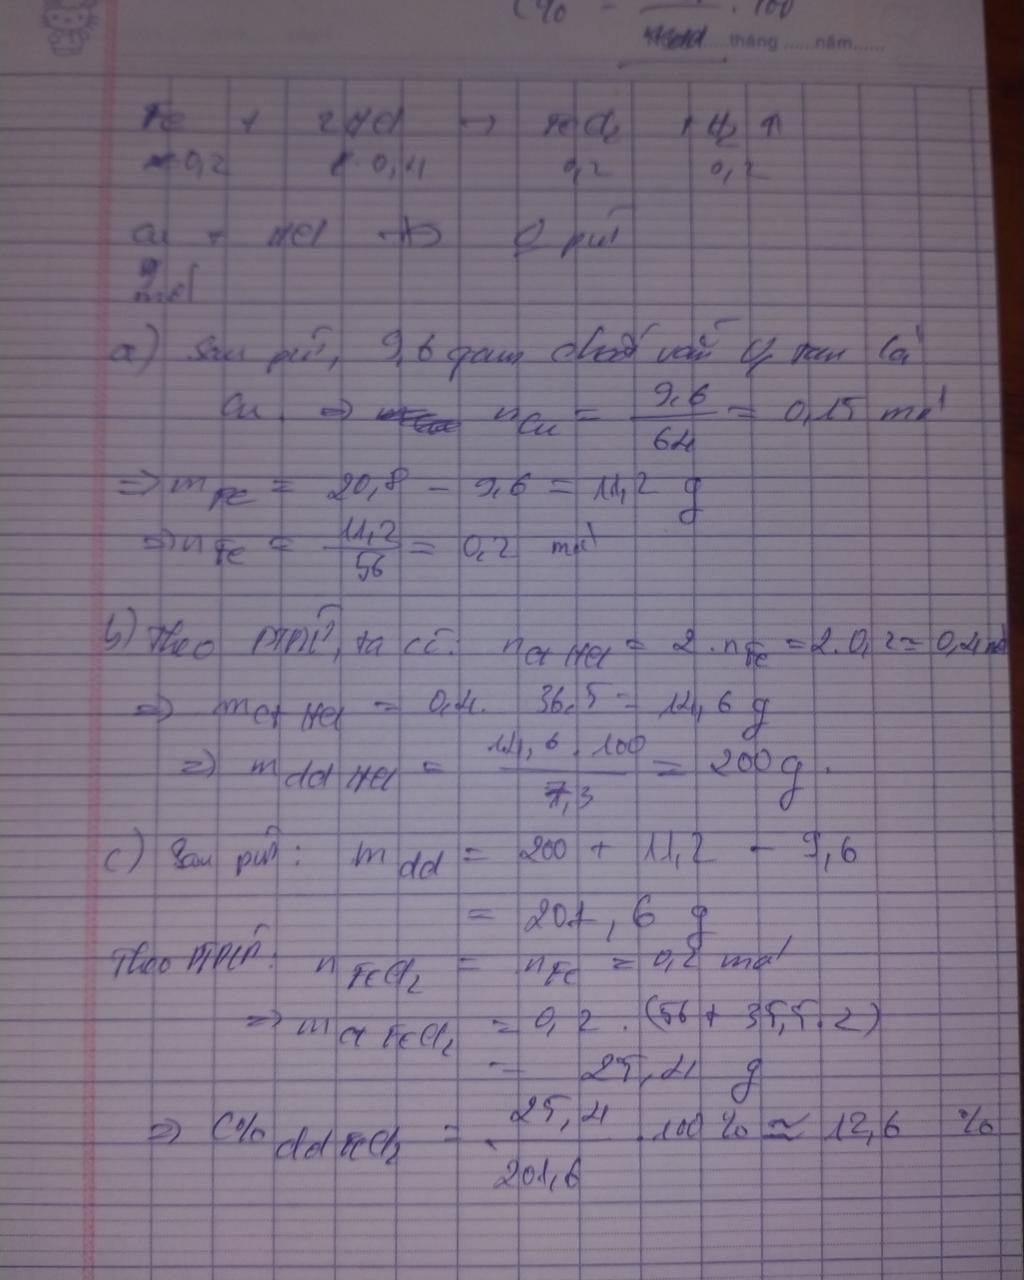 C% = . 100
tháng ...... năm......
Fe + 2HCl → FeCl2 + H2 ↑
0,2 0,4 0,2 0,2
Cu + HCl ↛ O pứ
a) Sau pứ, 9,6 gam chất rắn O tan là
Cu. ⇒ nCu = 9,6/64 = 0,15 mol
⇒ mFe = 20,8 - 9,6 = 11,2 g
⇒ nFe = 11,2/56 = 0,2 mol
b) Theo PTPƯ, ta có: nct HCl = 2 . nFe = 2. 0,2 = 0,4 mol
⇒ mct HCl = 0,4. 36,5 = 14,6 g
⇒ mdd HCl = 14,6 . 100/7,3 = 200 g.
c) Sau pứ: mdd = 200 + 11,2 - 9,6
= 201,6 g
Theo PTPƯ: nFeCl2 = nFe = 0,2 mol
⇒ mct FeCl2 = 0,2 . (56 + 35,5.2)
= 25,4 g
⇒ C% dd FeCl2 = 25,4/201,6 . 100 % ≈ 12,6 %